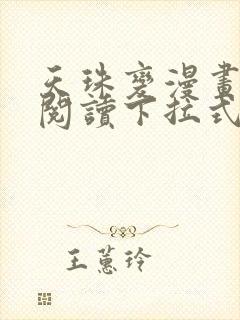 天珠變漫畫
閱讀下拉式
王蕙玲